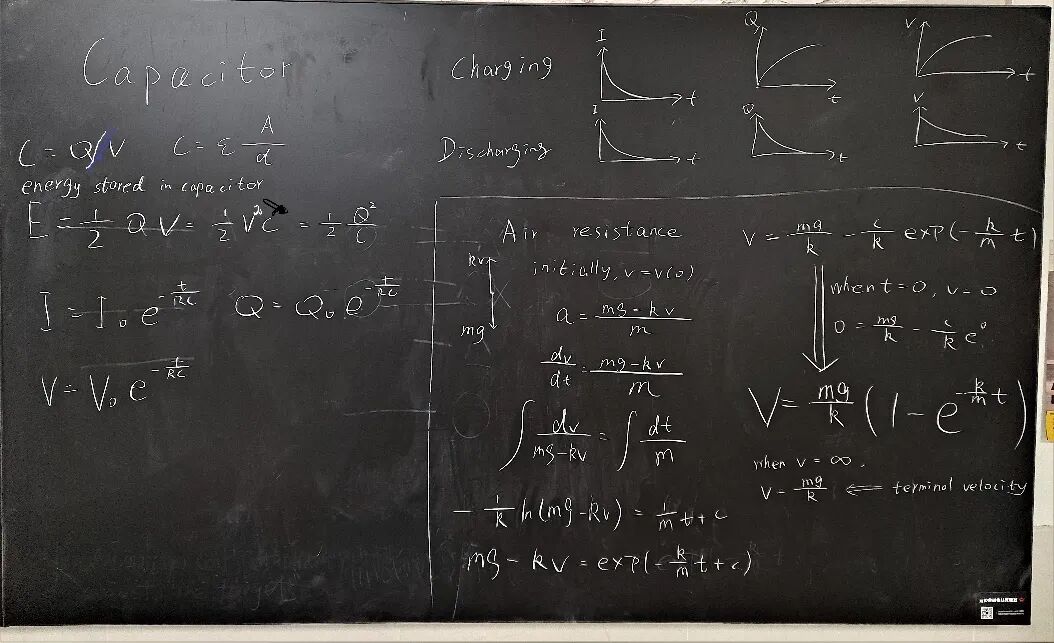 Capacitor
C = Q/V C = ε A/d
energy stored in capacitor
E = 1/2 QV = 1/2 V²C = 1/2 Q²/C
I = I₀ e^(-t/RC) Q = Q₀ e^(-t/RC)
V = V₀ e^(-t/RC)
Charging
I t
Q t
V t
Discharging
I t
Q t
V t
Air resistance
kv
mg
initially, v = v(0)
a = (mg - kv)/m
dv/dt = (mg - kv)/m
∫ dv/(mg - kv) = ∫ dt/m
- 1/k ln(mg - kv) = 1/m t + c
mg - kv = exp(- k/m t + c)
V = mg/k - c/k exp(- k/m t)
when t = 0, v = 0
0 = mg/k - c/k e⁰
V = mg/k (1 - e^(-k/m t))
when v = ∞,
V = mg/k ⇐ terminal velocity